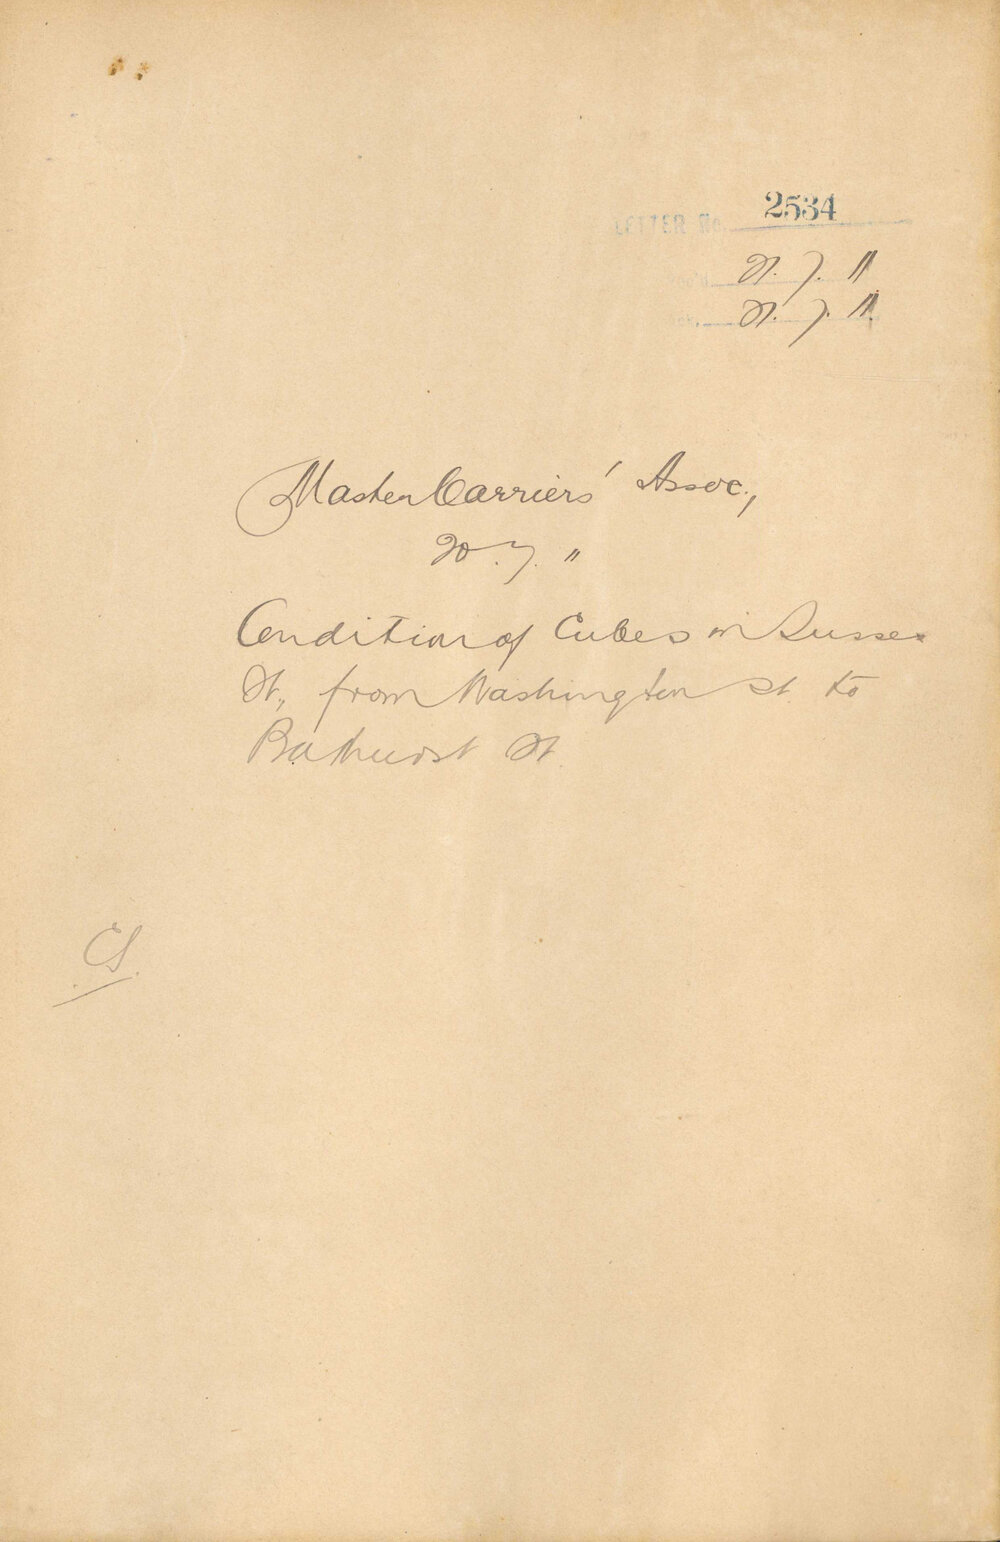 LETTER No. 2534
Rec'd. 21. 7. 11
Ack. 21. 7. 11
Master Carriers' Assoc.,
20. 7. "
Condition of Cubes in Sussex
St., from Washington St. to
Bathurst St.